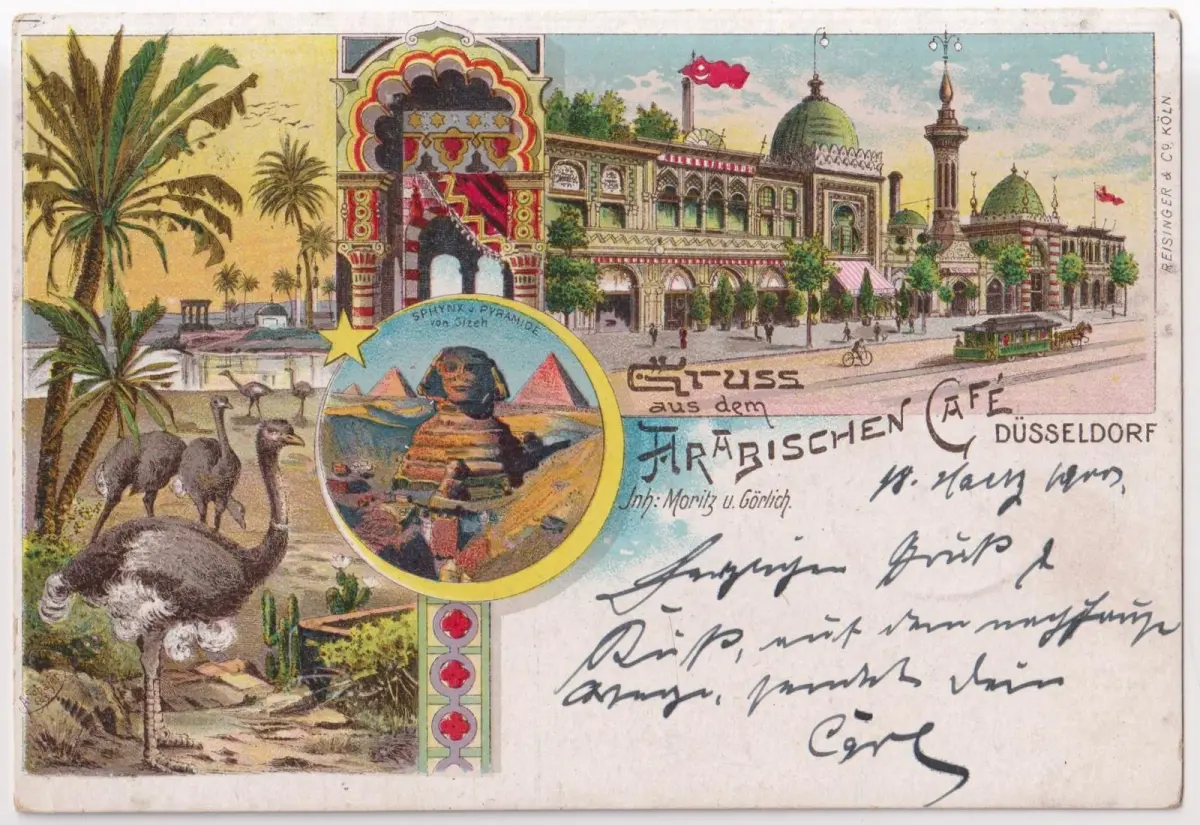 REISINGER & Co. KÖLN.
SPHYNX u. PYRAMIDE
von Gizeh
Gruss
aus dem
ARABISCHEN CAFÉ
DÜSSELDORF
Jnh: Moritz u. Görlich.
18. Maerz
Herzlichen Gruß &
Kuß, auf dem
Wege, sendet dein
Carl